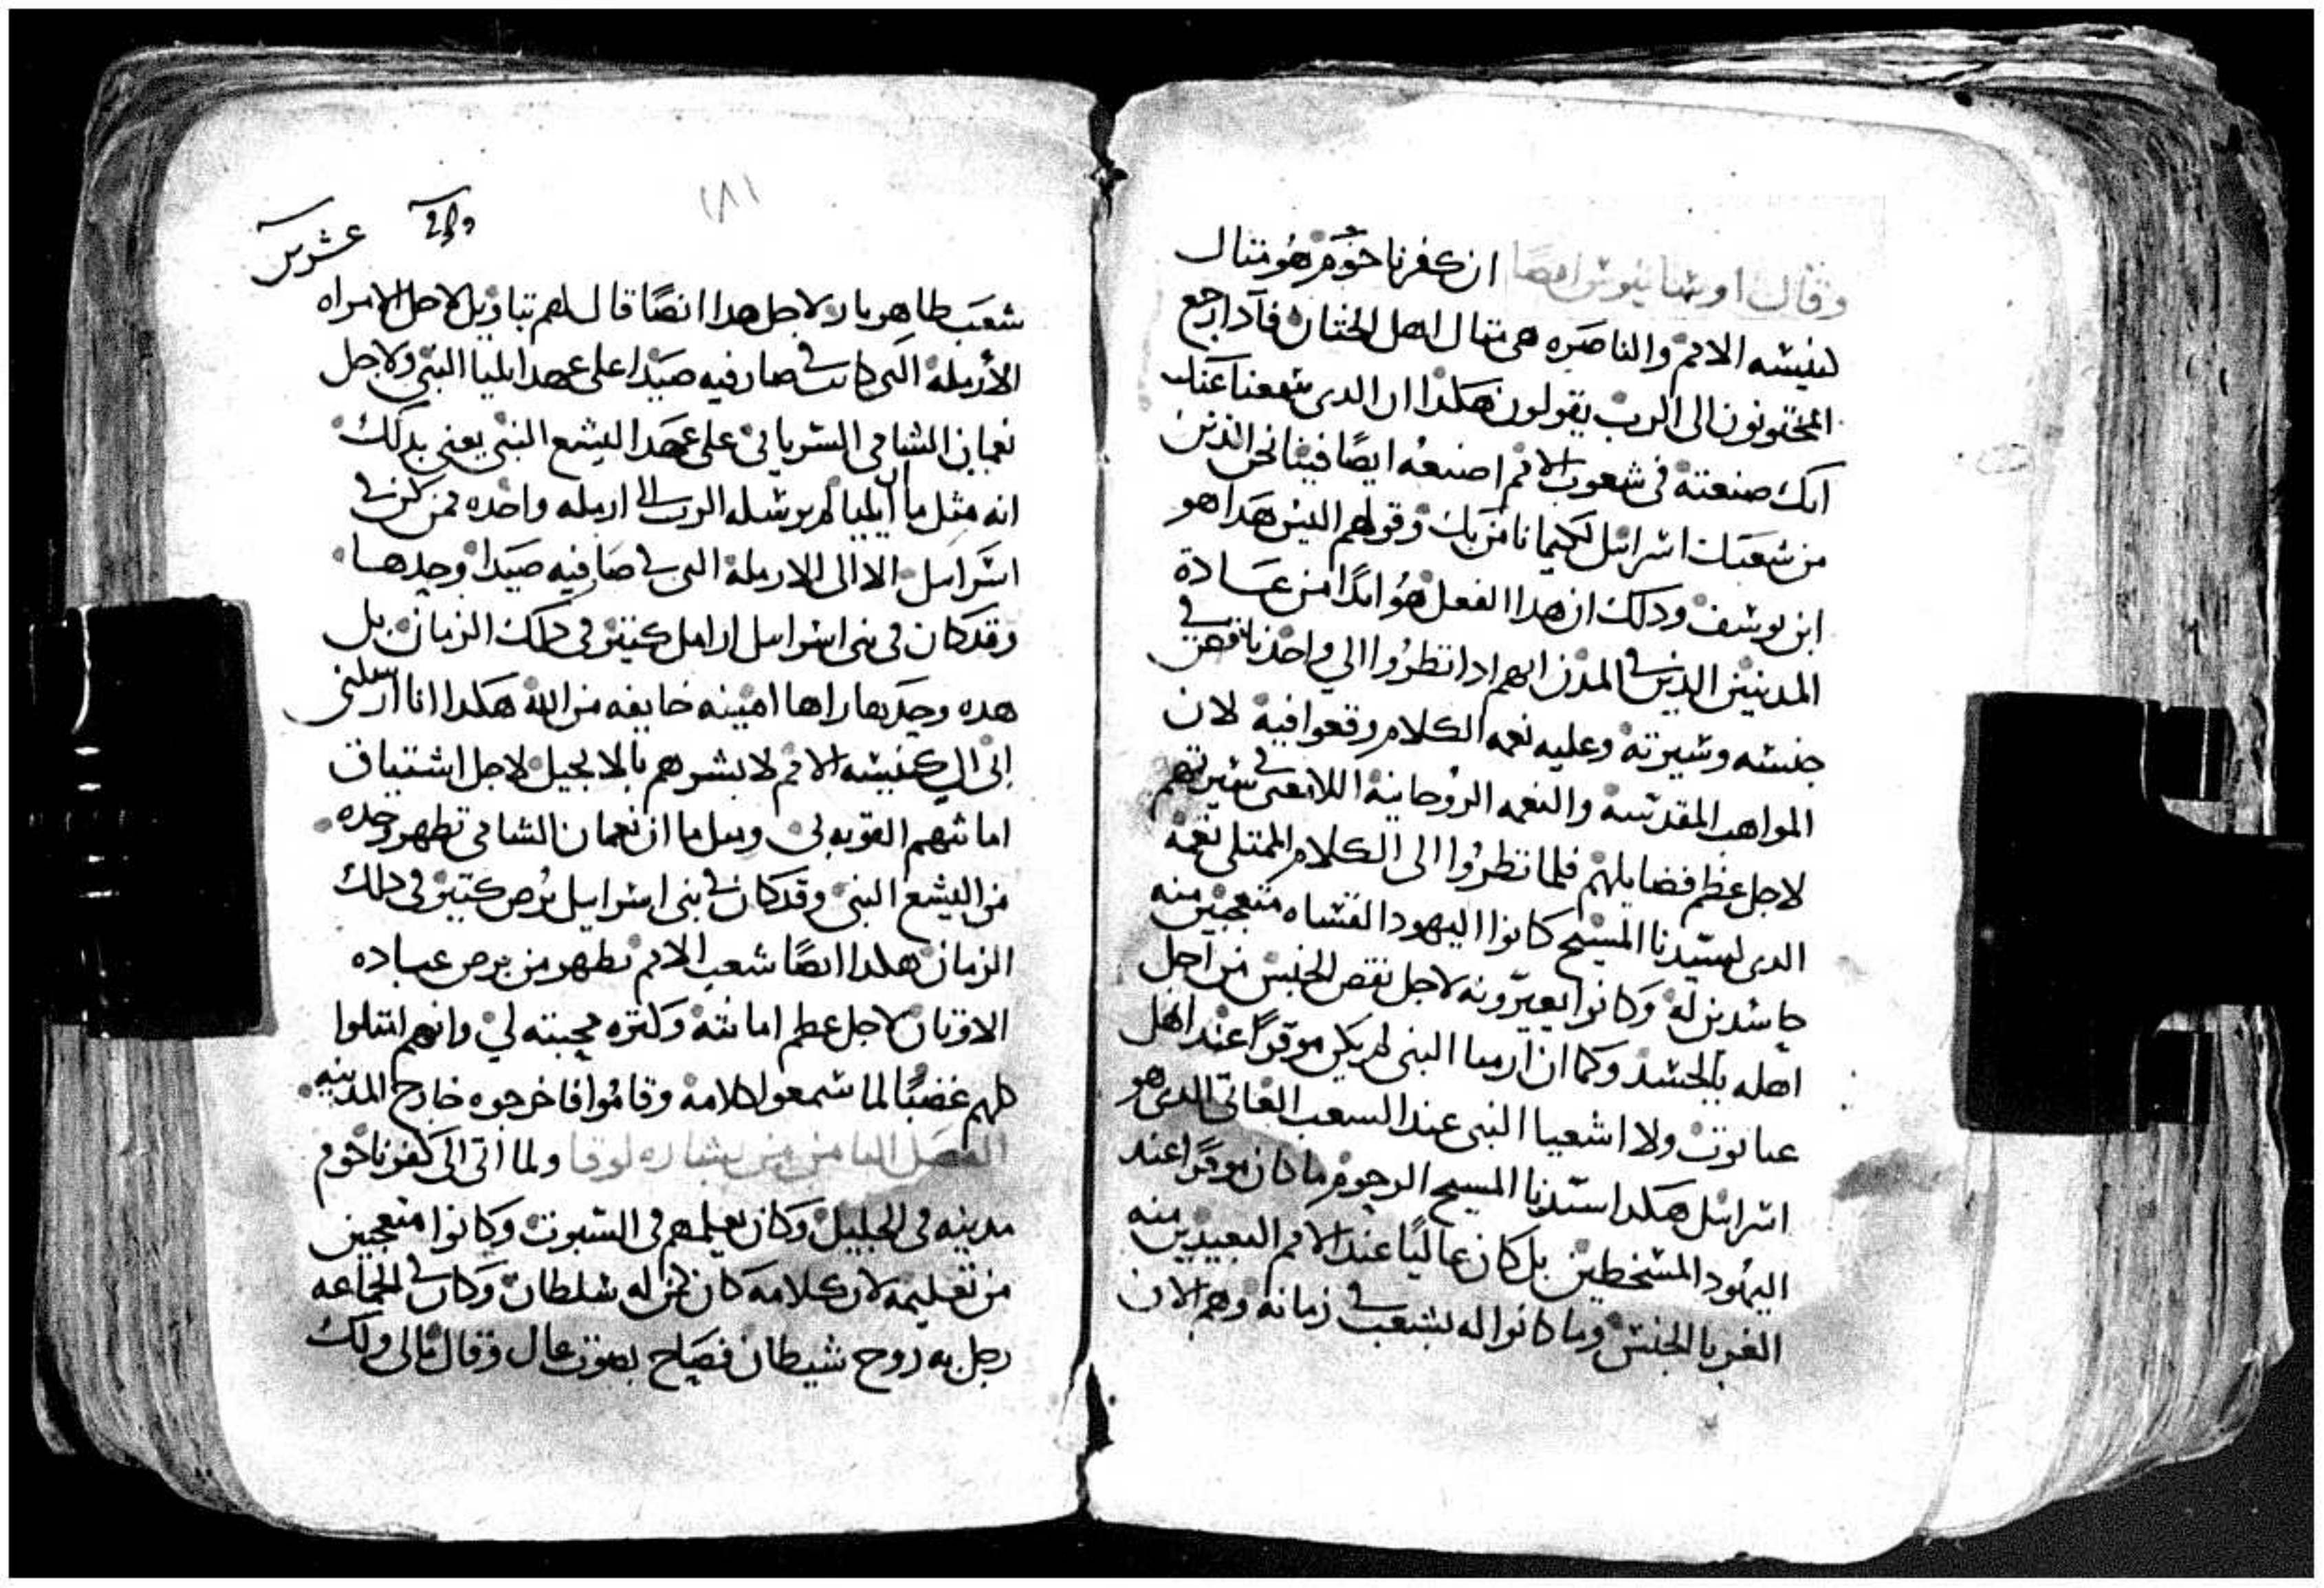 وقال اوسابيوس ايضا ان كفرناحوم هو مثال
لنيسه الامم والناصره هي مثال اهل الختان فاذا رجع
المختونون الى الرب يقولون هكدا ان الدى سمعنا عنك
انك صنعته فى شعوب الامم اصنعه ايضا فينا نحن الذين
من شعبك اسرائيل لكيما نامن بك وقولهم اليس هدا هو
ابن يوسف ودلك ان هدا الفعل هو ابدا من عادة
المدنيين الدين فى المدن انهم ادا نظروا الى واحد ناقص فى
جنسه وسيرته وعليه نعمه الكلام وقعوا فيه لان
المواهب المقدسه والنعمه الروحانية اللا تعنى سيرتهم
لاجل عظم فضايلهم فلما نظروا الى الكلام الممتلى نعمه
الدى لسيدنا المسيح كانوا اليهود القساه متعجبين منه
حاسدين له وكانوا يعيرونه لاجل نقص الجنس من اجل
اهله بالجسد وكما ان ارميا النبى لم يكن موقرا عند اهل
عناتوت ولا اشعيا النبى عند السعب القاتى الدى هو
اسرائيل هكدا سيدنا المسيح الرحوم ما كان موقرا عند
اليهود المسخطين بل كان عاليا عند الامم البعيدين منه
الغربا الجنس وما كانوا له بشعب فى زمانه وهم الان
١٨١
عشرين
شعب طاهر بار لاجل هدا ايضا قال لهم تباويل لاجل الامراه
الأرمله التى كانت فى صارفيه صيدا على عهد ايليا النبى ولاجل
نعمان الشامى السريانى على عهد اليشع النبى يعنى بدلك
انه مثل ما ان ايليا لم يرسله الرب الى ارمله واحده ممن كن فى
اسرايل الا الى الارمله التى فى صافيه صيدا وحدها
وقد كان فى بنى اسرايل ارامل كثير فى دلك الزمان بل
هده وحدها راها امينه خايفه من الله هكدا انا ارسلنى
ابى الى كنيسه الامم لابشرهم بالانجيل لاجل اشتياق
امانتهم القويه لى ومثل ما ان نعمان الشامى تطهر وحده
من اليشع النبى وقد كان فى بنى اسرايل برص كثير فى دلك
الزمان هكدا ايضا شعب الامم تطهر من برص عباده
الاوثان لاجل عظم امانته وكتره محبته لى وانهم امتلوا
كلهم غضبا لما سمعوا كلامه وقاموا فاخرجوه خارج المدينه
الفصل الثامن من بشاره لوقا ولما اتى الى كفرناحوم
مدينه فى الجليل وكان يعلمهم فى السبوت وكانوا متعجبين
من تعليمه لان كلامه كان كمن له سلطان وكان فى الجماعه
رجل به روح شيطان فصاح بصوت عال وقال مالى ولك